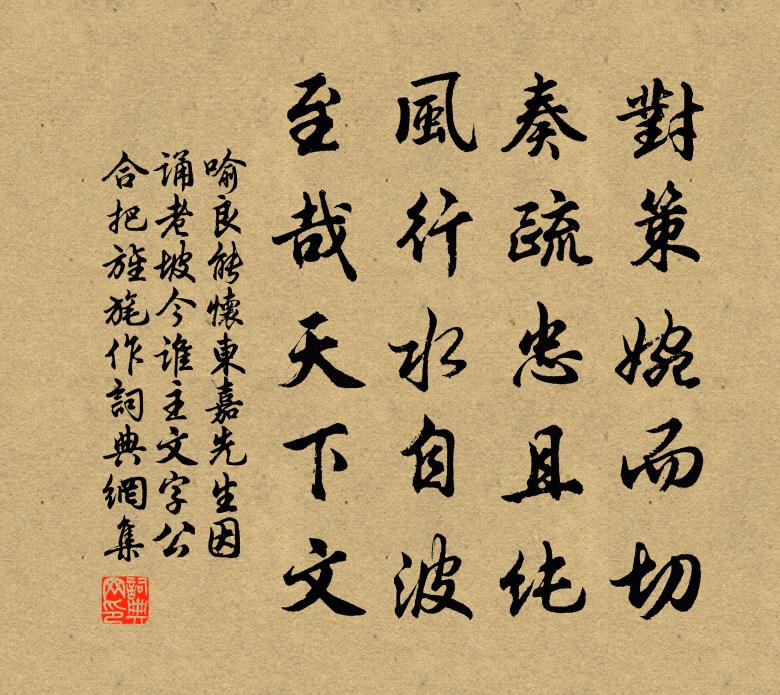 對策婉而切
奏疏忠且純
風行水自波
至哉天下文
喻良能懷東嘉先生因
誦老坡今誰主文字公
合把旌旄作詞典網集
詞典网印